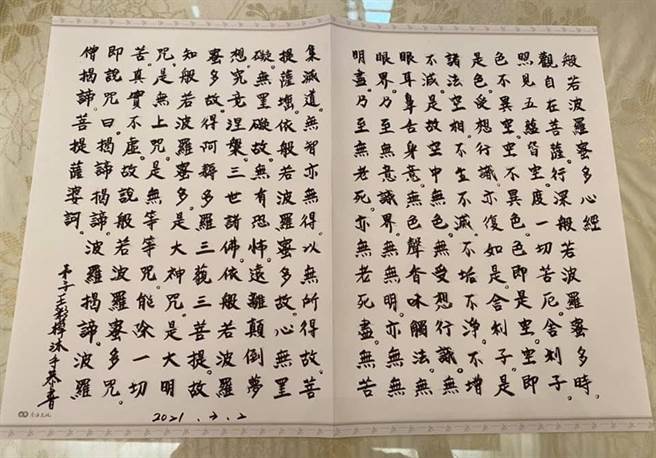 般若波羅蜜多心經
觀自在菩薩。行深般若波羅蜜多時。
照見五蘊皆空。度一切苦厄。舍利子。
色不異空。空不異色。色即是空。空即
是色。受想行識。亦復如是。舍利子。是
諸法空相。不生不滅。不垢不淨。不增
不減。是故空中無色。無受想行識。無
眼耳鼻舌身意。無色聲香味觸法。無
眼界。乃至無意識界。無無明。亦無無
明盡。乃至無老死。亦無老死盡。無苦
集滅道。無智亦無得。以無所得故。菩
提薩埵。依般若波羅蜜多故。心無罣
礙。無罣礙故。無有恐怖。遠離顛倒夢
想。究竟涅槃。三世諸佛。依般若波羅
蜜多故。得阿耨多羅三藐三菩提。故
知般若波羅蜜多。是大神咒。是大明
咒。是無上咒。是無等等咒。能除一切
苦。真實不虛。故說般若波羅蜜多咒。
即說咒曰。揭諦揭諦。波羅揭諦。波羅
僧揭諦。菩提薩婆訶。
弟子王彩樺沐手恭書
2021.7.2